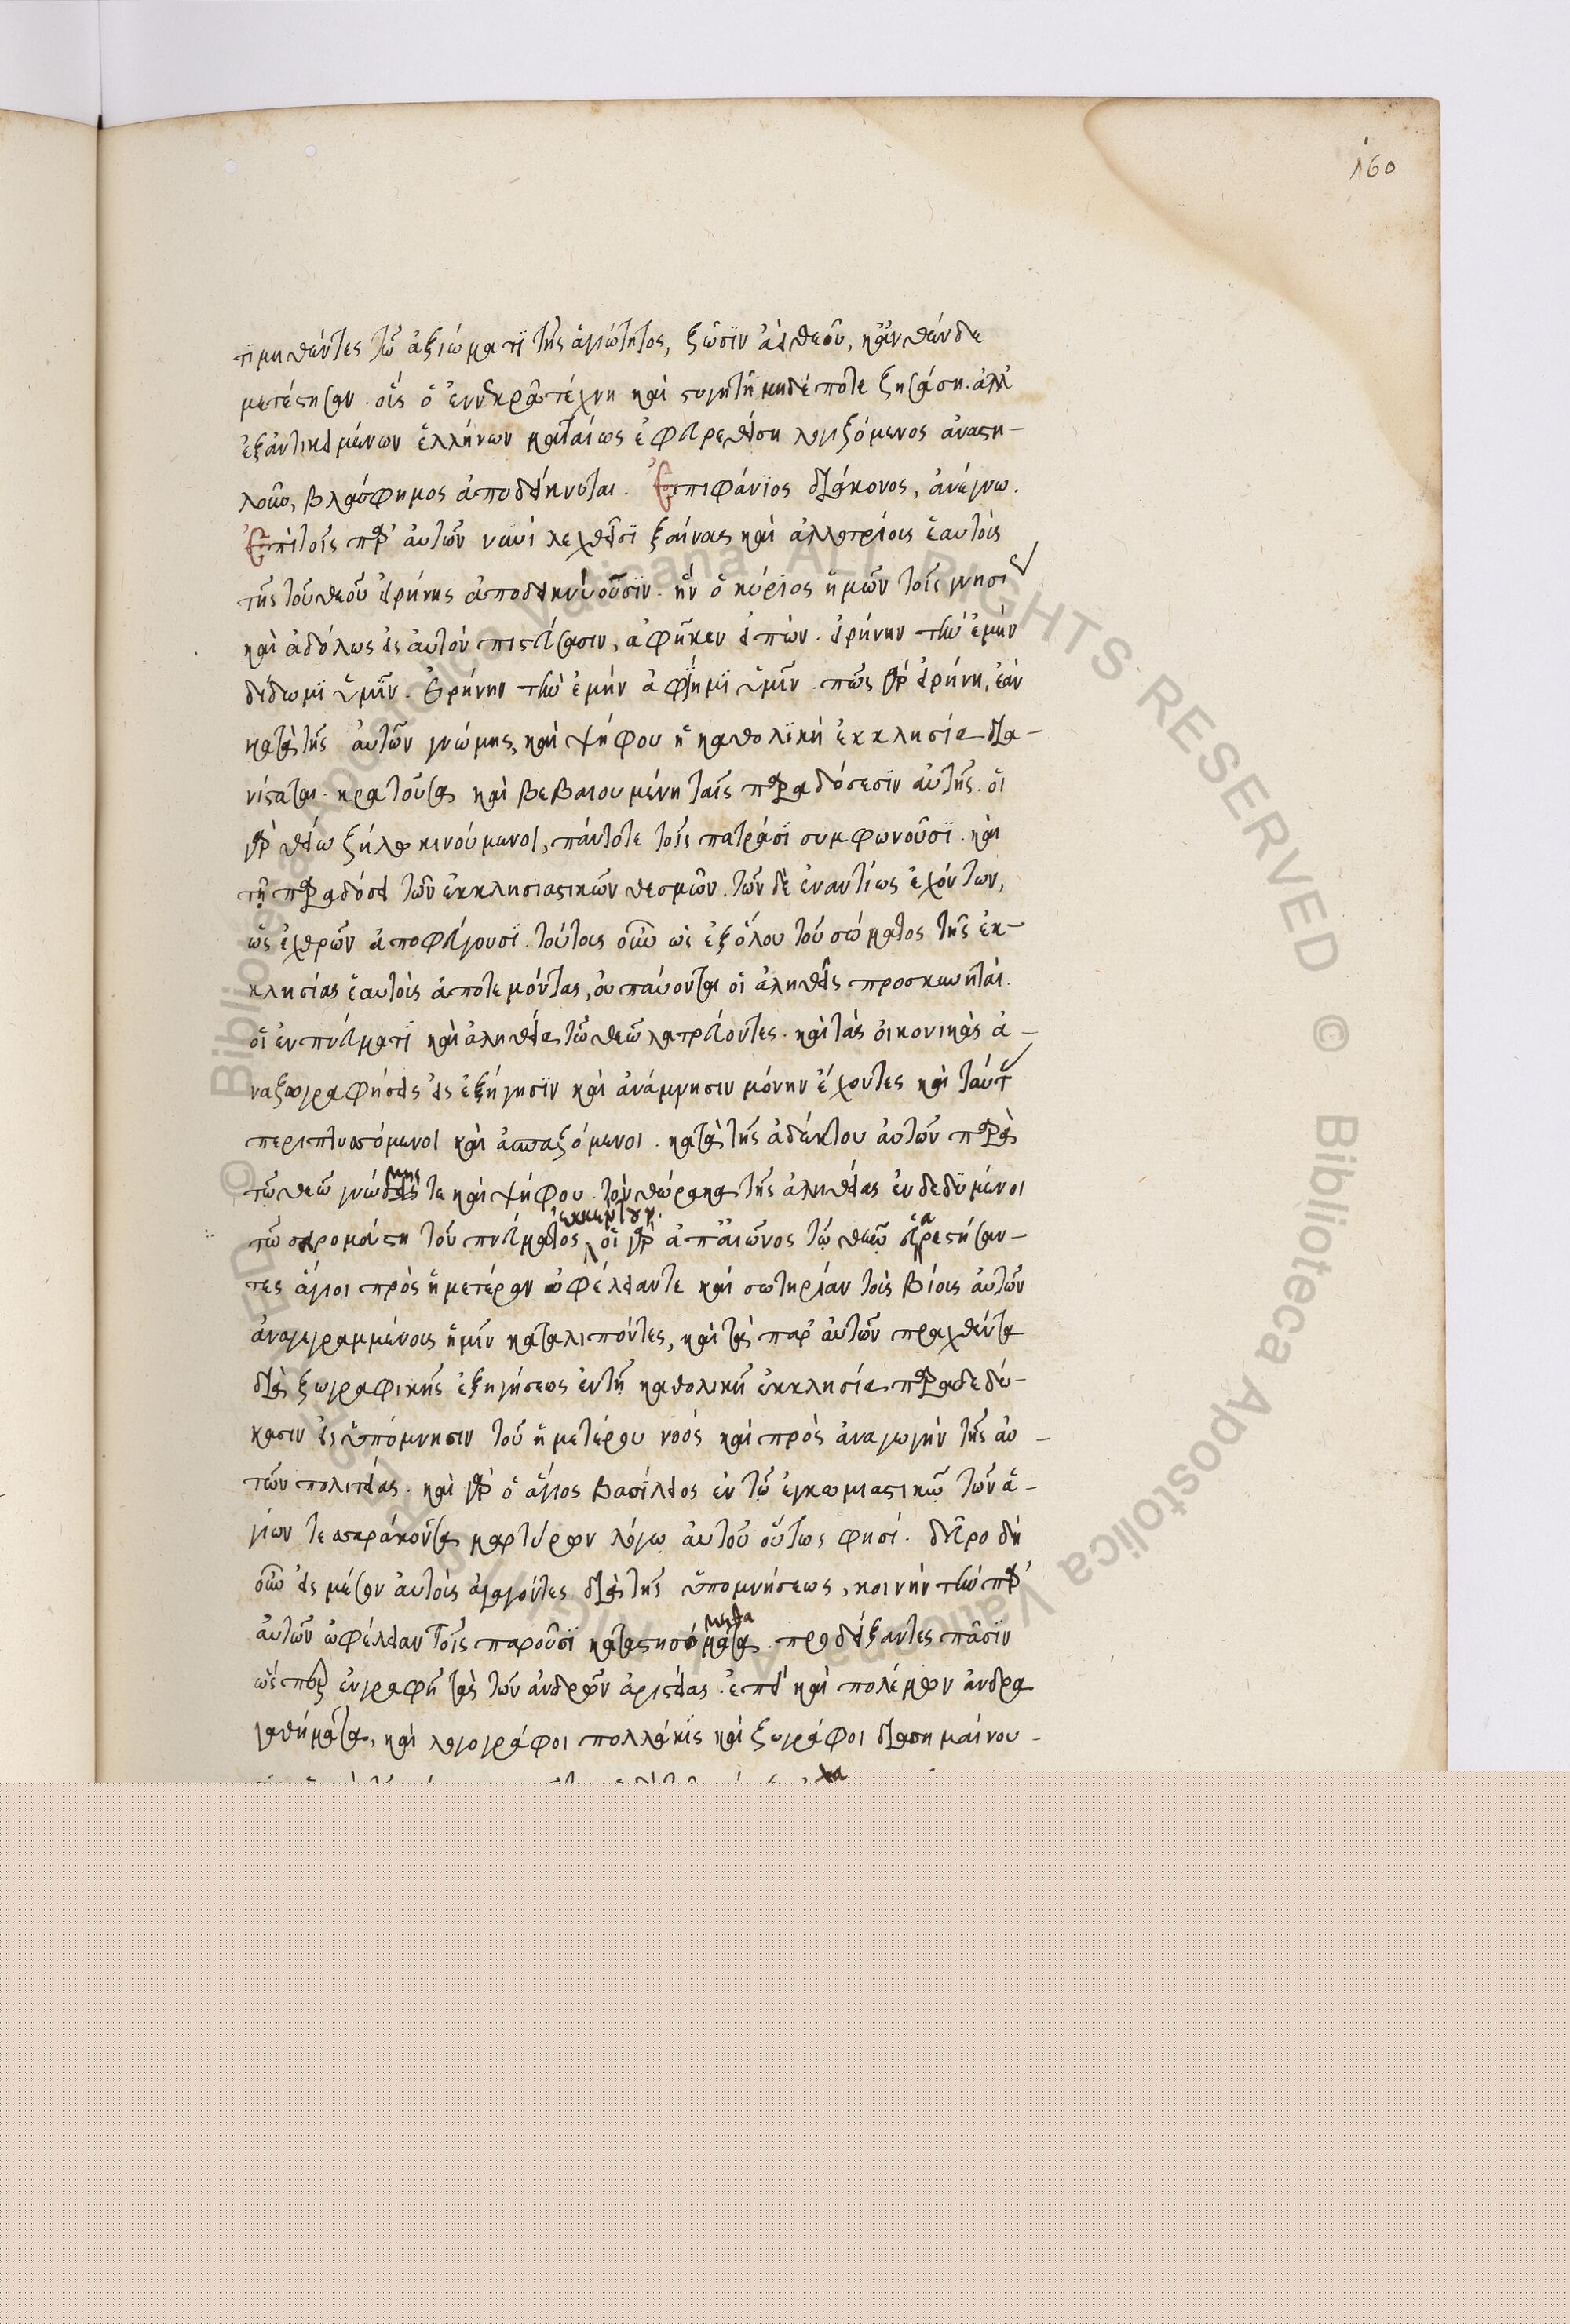 160
τιμηθέντες τῶ ἀξιώματι τῆς ἁγιότητος, ζῶσιν ἀεὶ θεῶ, κἂν θένδε
μετέστησαν. οἷς ὁ ἐν νεκρᾶ τέχνη καὶ στυγητῆ μηδέποτε ζησάση. ἀλλ'
ἐξ ἀντικειμένων ἑλλήνων ματαίως ἐφευρεθείση λογιζόμενος ἀναστη-
λοῦν, βλάσφημος ἀποδείκνυται. Ἐπιφάνιος διάκονος, ἀνέγνω.
Ἐπὶ τοῖς παρ' αὐτῶν νυνὶ λεχθεῖσι ξένους καὶ ἀλλοτρίους ἑαυτοὺς
τῆς τοῦ θεοῦ εἰρήνης ἀποδεικνύουσιν. ἣν ὁ κύριος ἡμῶν τοῖς γνησί
καὶ ἀδόλως εἰς αὐτὸν πιστεύσασιν, ἀφῆκεν εἰπών. εἰρήνην τὴν ἐμὴν
δίδωμι ὑμῖν. εἰρήνην τὴν ἐμὴν ἀφίημι ὑμῖν. πῶς γὰρ εἰρήνη, ἐὰν
κατὰ τῆς αὐτῶν γνώμης καὶ ψήφου ἡ καθολικὴ ἐκκλησία δια-
νίσταται. κρατοῦσα καὶ βεβαιουμένη ταῖς παραδόσεσιν αὐτῆς. οἱ
γὰρ θείω ζήλω κινούμενοι, πάντοτε τοῖς πατράσι συμφωνοῦσι. καὶ
τῇ παραδόσει τῶν ἐκκλησιαστικῶν θεσμῶν. τῶν δὲ ἐναντίως ἐχόντων,
ὡς ἐχθρῶν ἀποφεύγουσι. τούτοις οὖν ὡς ἐξ ὅλου τοῦ σώματος τῆς ἐκ-
κλησίας ἑαυτοὺς ἀποτεμόντας, οὐ παύονται οἱ ἀληθεῖς προσκυνηταί.
οἱ ἐν πνεύματι καὶ ἀληθεία τῶ θεῶ λατρεύοντες. καὶ τὰς εἰκονικὰς ἀ-
ναζωγραφήσεις εἰς ἐξήγησιν καὶ ἀνάμνησιν μόνην ἔχοντες καὶ ταύτ
περιπτυσόμενοι καὶ ἀσπαζόμενοι. κατὰ τῆς ἀδέκτου αὐτῶν παρὰ
τῶ θεῶ γνώμης τε καὶ ψήφου. τὸν θώρακα τῆς ἀληθείας ἐνδεδυμένοι
τῶ σειρομάστη τοῦ πνεύματος ἐκκεντοῦν. οἱ γὰρ ἀπ' αἰῶνος τῷ θεῷ εὐαρεστήσαν-
τες ἅγιοι πρὸς ἡμετέραν ὠφέλειάν τε καὶ σωτηρίαν τοὺς βίους αὐτῶν
ἀναγεγραμμένους ἡμῖν καταλιπόντες, καὶ τὰ παρ' αὐτῶν πραχθέντα
διὰ ζωγραφικῆς ἐξηγήσεως ἐν τῇ καθολικῇ ἐκκλησία παραδεδώ-
κασιν εἰς ὑπόμνησιν τοῦ ἡμετέρου νοὸς καὶ πρὸς ἀναγωγὴν τῆς αὐ-
τῶν πολιτείας. καὶ γὰρ ὁ ἅγιος βασίλειος ἐν τῷ ἐγκωμιαστικῷ τῶν ἁ-
γίων τεσσαράκοντα μαρτύρων λόγῳ αὐτοῦ οὕτως φησί. δεῦρο δὴ
οὖν εἰς μέσον αὐτοὺς ἀγαγόντες διὰ τῆς ὑπομνήσεως, κοινὴν τὴν παρ'
αὐτῶν ὠφέλειαν τοῖς παροῦσι καταστησόμεθα. προδείξαντες πᾶσιν
ὥσπερ ἐν γραφῇ τὰς τῶν ἀνδρῶν ἀριστείας. ἐπεὶ καὶ πολέμων ἀνδρα
γαθήματα, καὶ λογογράφοι πολλάκις καὶ ζωγράφοι διασημαίνου-
© Biblioteca Apostolica Vaticana ALL RIGHTS RESERVED